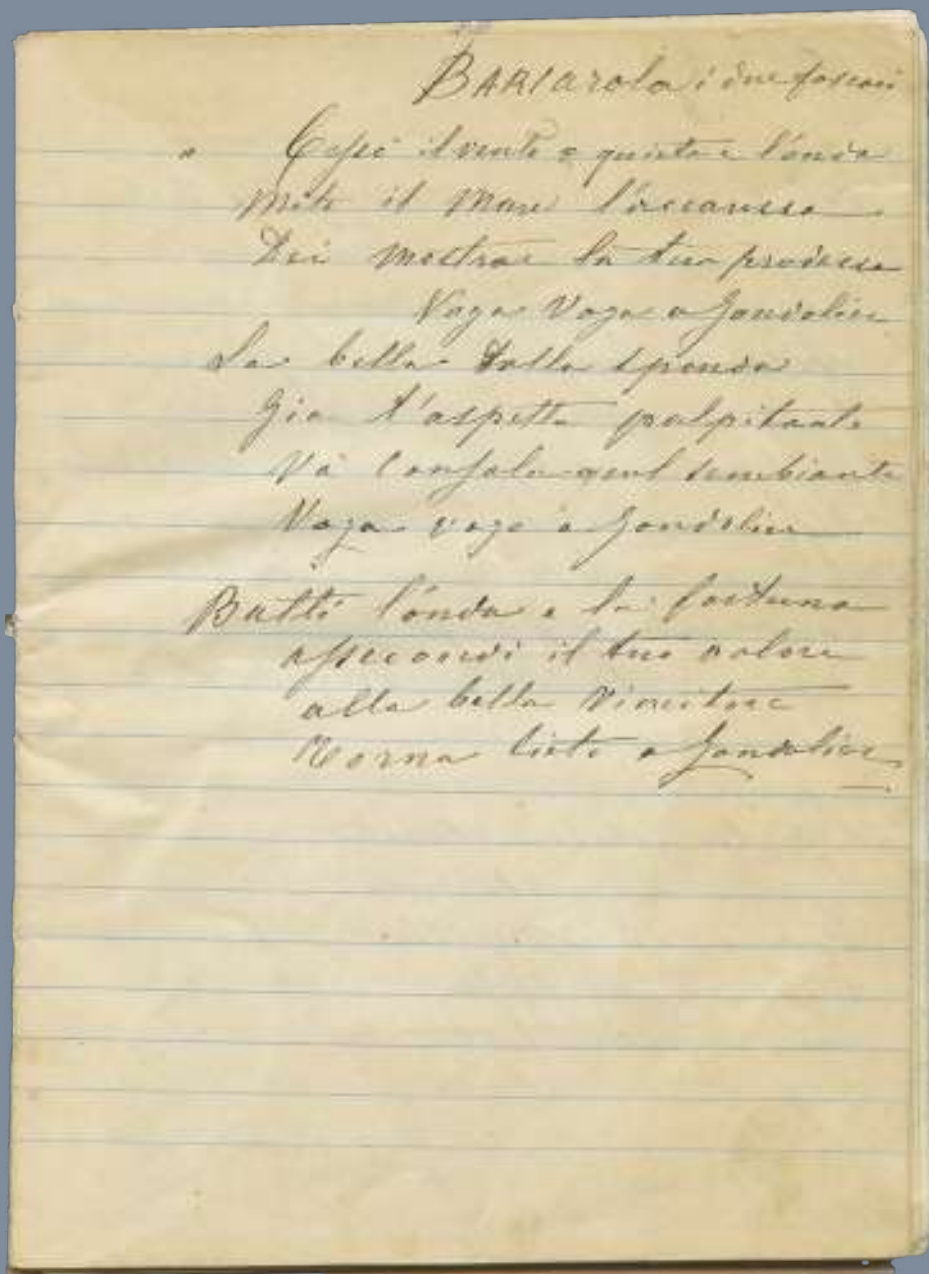 BARCarola i due foscari
Cessò il vento e quieta e l'onda
Mite il Mare l'accarezza
Dei mostrar la tua prodezza
Voga Voga o Gondolier
La bella dalla sponda
Gia t'aspetta palpitante
Và Consola quel sembiante
Voga voga o Gondolier
Batti l'onda e la fortuna
assecondi il tuo valore
alla bella Vincitore
Torna lieto o Gondolier